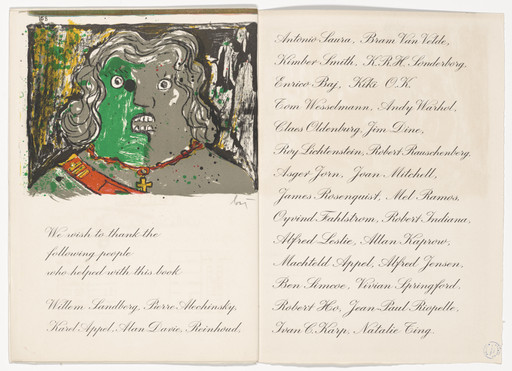 We wish to thank the
following people
who helped with this book
Willem Sandberg, Pierre Alechinsky,
Karel Appel, Alan Davie, Reinhoud,
Antonio Saura, Bram Van Velde,
Kimber Smith, K.R.H. Sonderborg,
Enrico Baj, Kiki O.K.
Tom Wesselmann, Andy Warhol,
Claes Oldenburg, Jim Dine,
Roy Lichtenstein, Robert Rauschenberg,
Asger Jorn, Joan Mitchell,
James Rosenquist, Mel Ramos,
Oyvind Fahlstrom, Robert Indiana,
Alfred Leslie, Allan Kaprow,
Machteld Appel, Alfred Jensen,
Ben Simcoe, Vivian Springford,
Robert Ho, Jean-Paul Riopelle,
Ivan C. Karp, Natalie Ting